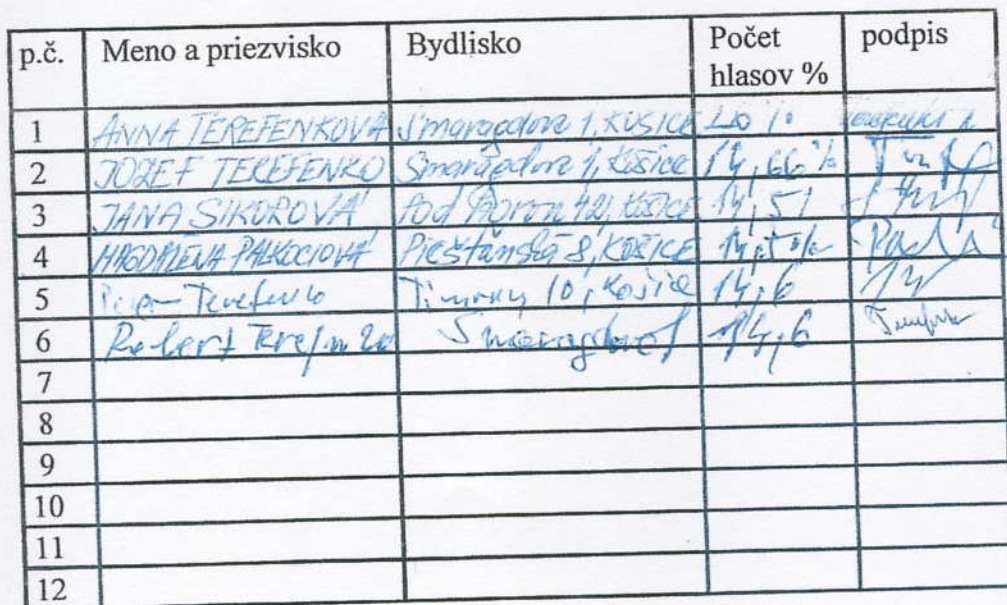 p.č. Meno a priezvisko Bydlisko Počet hlasov % podpis
1 ANNA TEREFENKOVÁ Smaragdova 1, KOŠICE
2 JOZEF TEREFENKO Smaragdova 1, Košice 14,66%
3 JANA SIKOROVÁ Pod 42, Košice 14,51
4 MAGDALÉNA PALKOCIOVÁ Piešťanská 8, KOŠICE 14,5%
5 Terefenko Timravy 10, Košice 14,6
6 Robert Terefenko 14,6
7
8
9
10
11
12